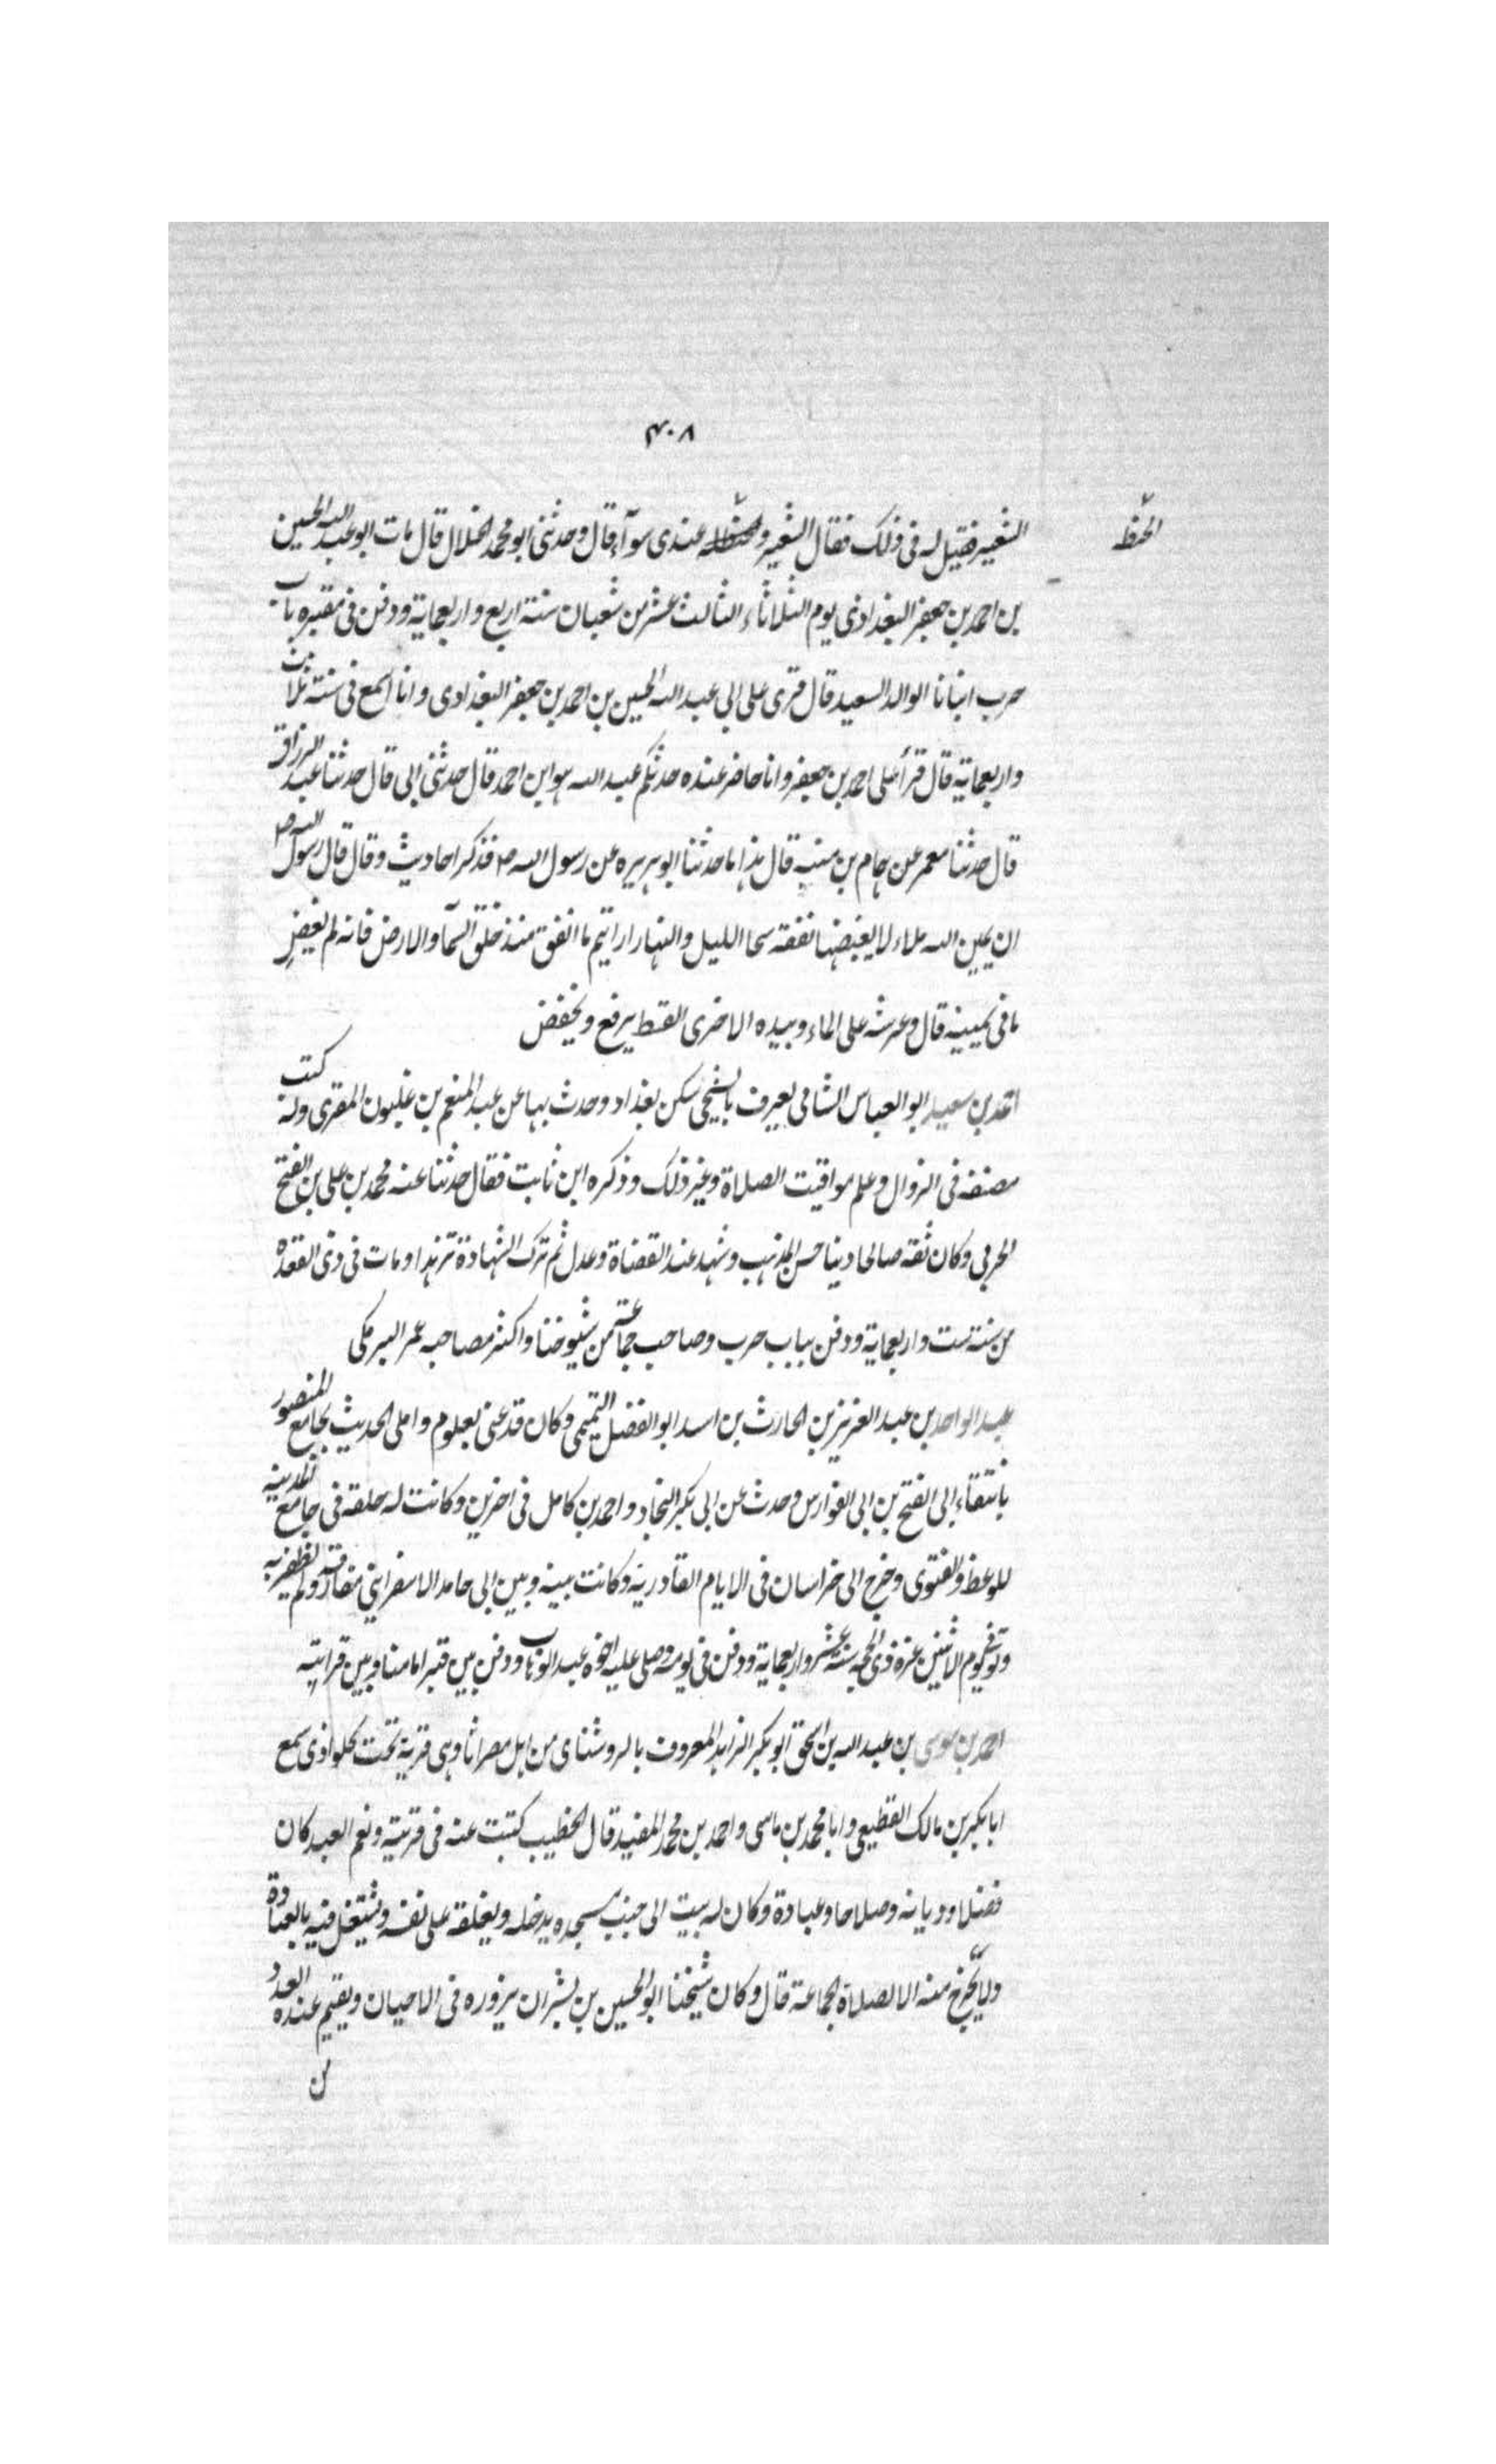 ٤٠٨
الشعير فقيل له فى ذلك فقال الشعير و عندى سوآء قال وحدثنى ابو محمد الخلال قال مات ابو عبد الله الحسين
بن احمد بن جعفر البغدادى يوم الثلاثاء الثالث عشر من شعبان سنة اربع واربعماية ودفن فى مقبره باب
حرب انبانا الوالد السعيد قال قرى على ابى عبد الله الحسين بن احمد بن جعفر البغدادى وانا اسمع فى سنة ثلاث
واربعماية قال قرأ على احمد بن جعفر وانا حاضر عنده حدثكم عبد الله هو ابن احمد قال حدثنى ابى قال حدثنا عبد الرزاق
قال حدثنا معمر عن همام بن منبه قال هذا ما حدثنا ابو هريره عن رسول الله ص فذكر احاديث وقال قال رسول الله ص
ان يمين الله ملاء لا يغيضها نفقه سحا الليل والنهار ارايتم ما انفق منذ خلق السمآ والارض فانه لم يغيض
ما فى يمينه قال وعرشه على الماء وبيده الاخرى القسط يرفع ويخفض
احمد بن سعيد ابو العباس الشامى يعرف بالشيحى سكن بغداد وحدث بها عن عبد المنعم بن غلبون المقرى وله كتب
مصنفه فى الزوال وعلم مواقيت الصلاة وغير ذلك وذكره ابن ثابت فقال حدثنا عنه محمد بن على بن الفتح
الحربى وكان ثقه صالحا دينا حسن المذهب وشهد عند القضاة وعدل ثم ترك الشهادة تزهدا ومات فى ذى القعدة
من سنة ست واربعماية ودفن بباب حرب وصاحب جماعة من شيوخنا واكثر مصاحبه عمر البرمكى
عبد الواحد بن عبد العزيز بن الحارث بن اسد ابو الفضل التميمى وكان قد عنى بعلوم واملى الحديث بجامع المنصور
بانتقاء ابى الفتح بن ابى الفوارس وحدث عن ابى بكر النجاد واحمد بن كامل فى اخرين وكانت له حلقه فى جامع المدينه
للوعظ والفتوى وخرج الى خراسان فى الايام القادريه وكانت بينه وبين ابى حامد الاسفراينى مفارقة ولم يظفر به
وتوفى يوم الاثنين غرة ذى الحجه سنة عشر واربعماية ودفن فى يومه وصلى عليه اخوه عبد الوهاب ودفن بين قبر امامنا وبين قرابته
احمد بن موسى بن عبد الله بن اسحق ابو بكر الزاهد المعروف بالروشناى من اهل مصراثا وهى قرية تحت كلواذى سمع
ابا بكر بن مالك القطيعى وابا محمد بن ماسى واحمد بن محمد المفيد قال الخطيب كتبت عنه فى قريته ونعم العبد كان
فضلا وديانه وصلاحا وعبادة وكان له بيت الى جنب مسجده يدخله ويغلقه على نفسه ويشتغل فيه بالعبادة
ولا يخرج منه الا لصلاة الجماعة قال وكان شيخنا ابو الحسين بن بشران يزوره فى الاحيان ويقيم عنده العدد
من